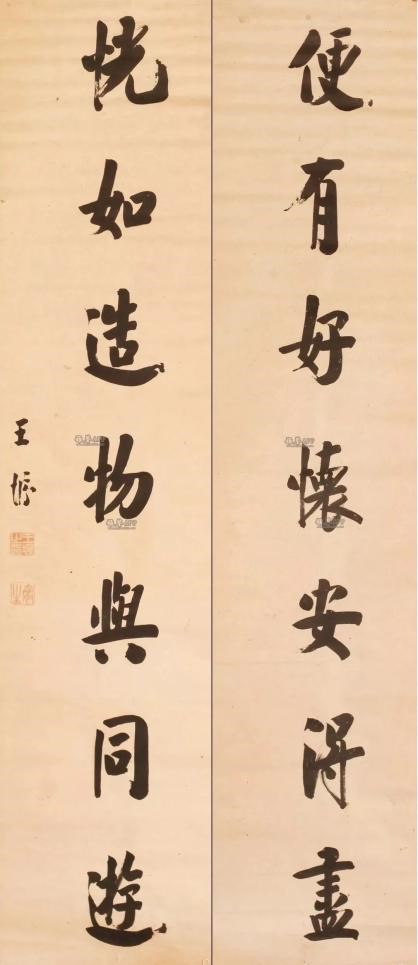 便有好懷安得盡
恍如造物與同遊
王愕